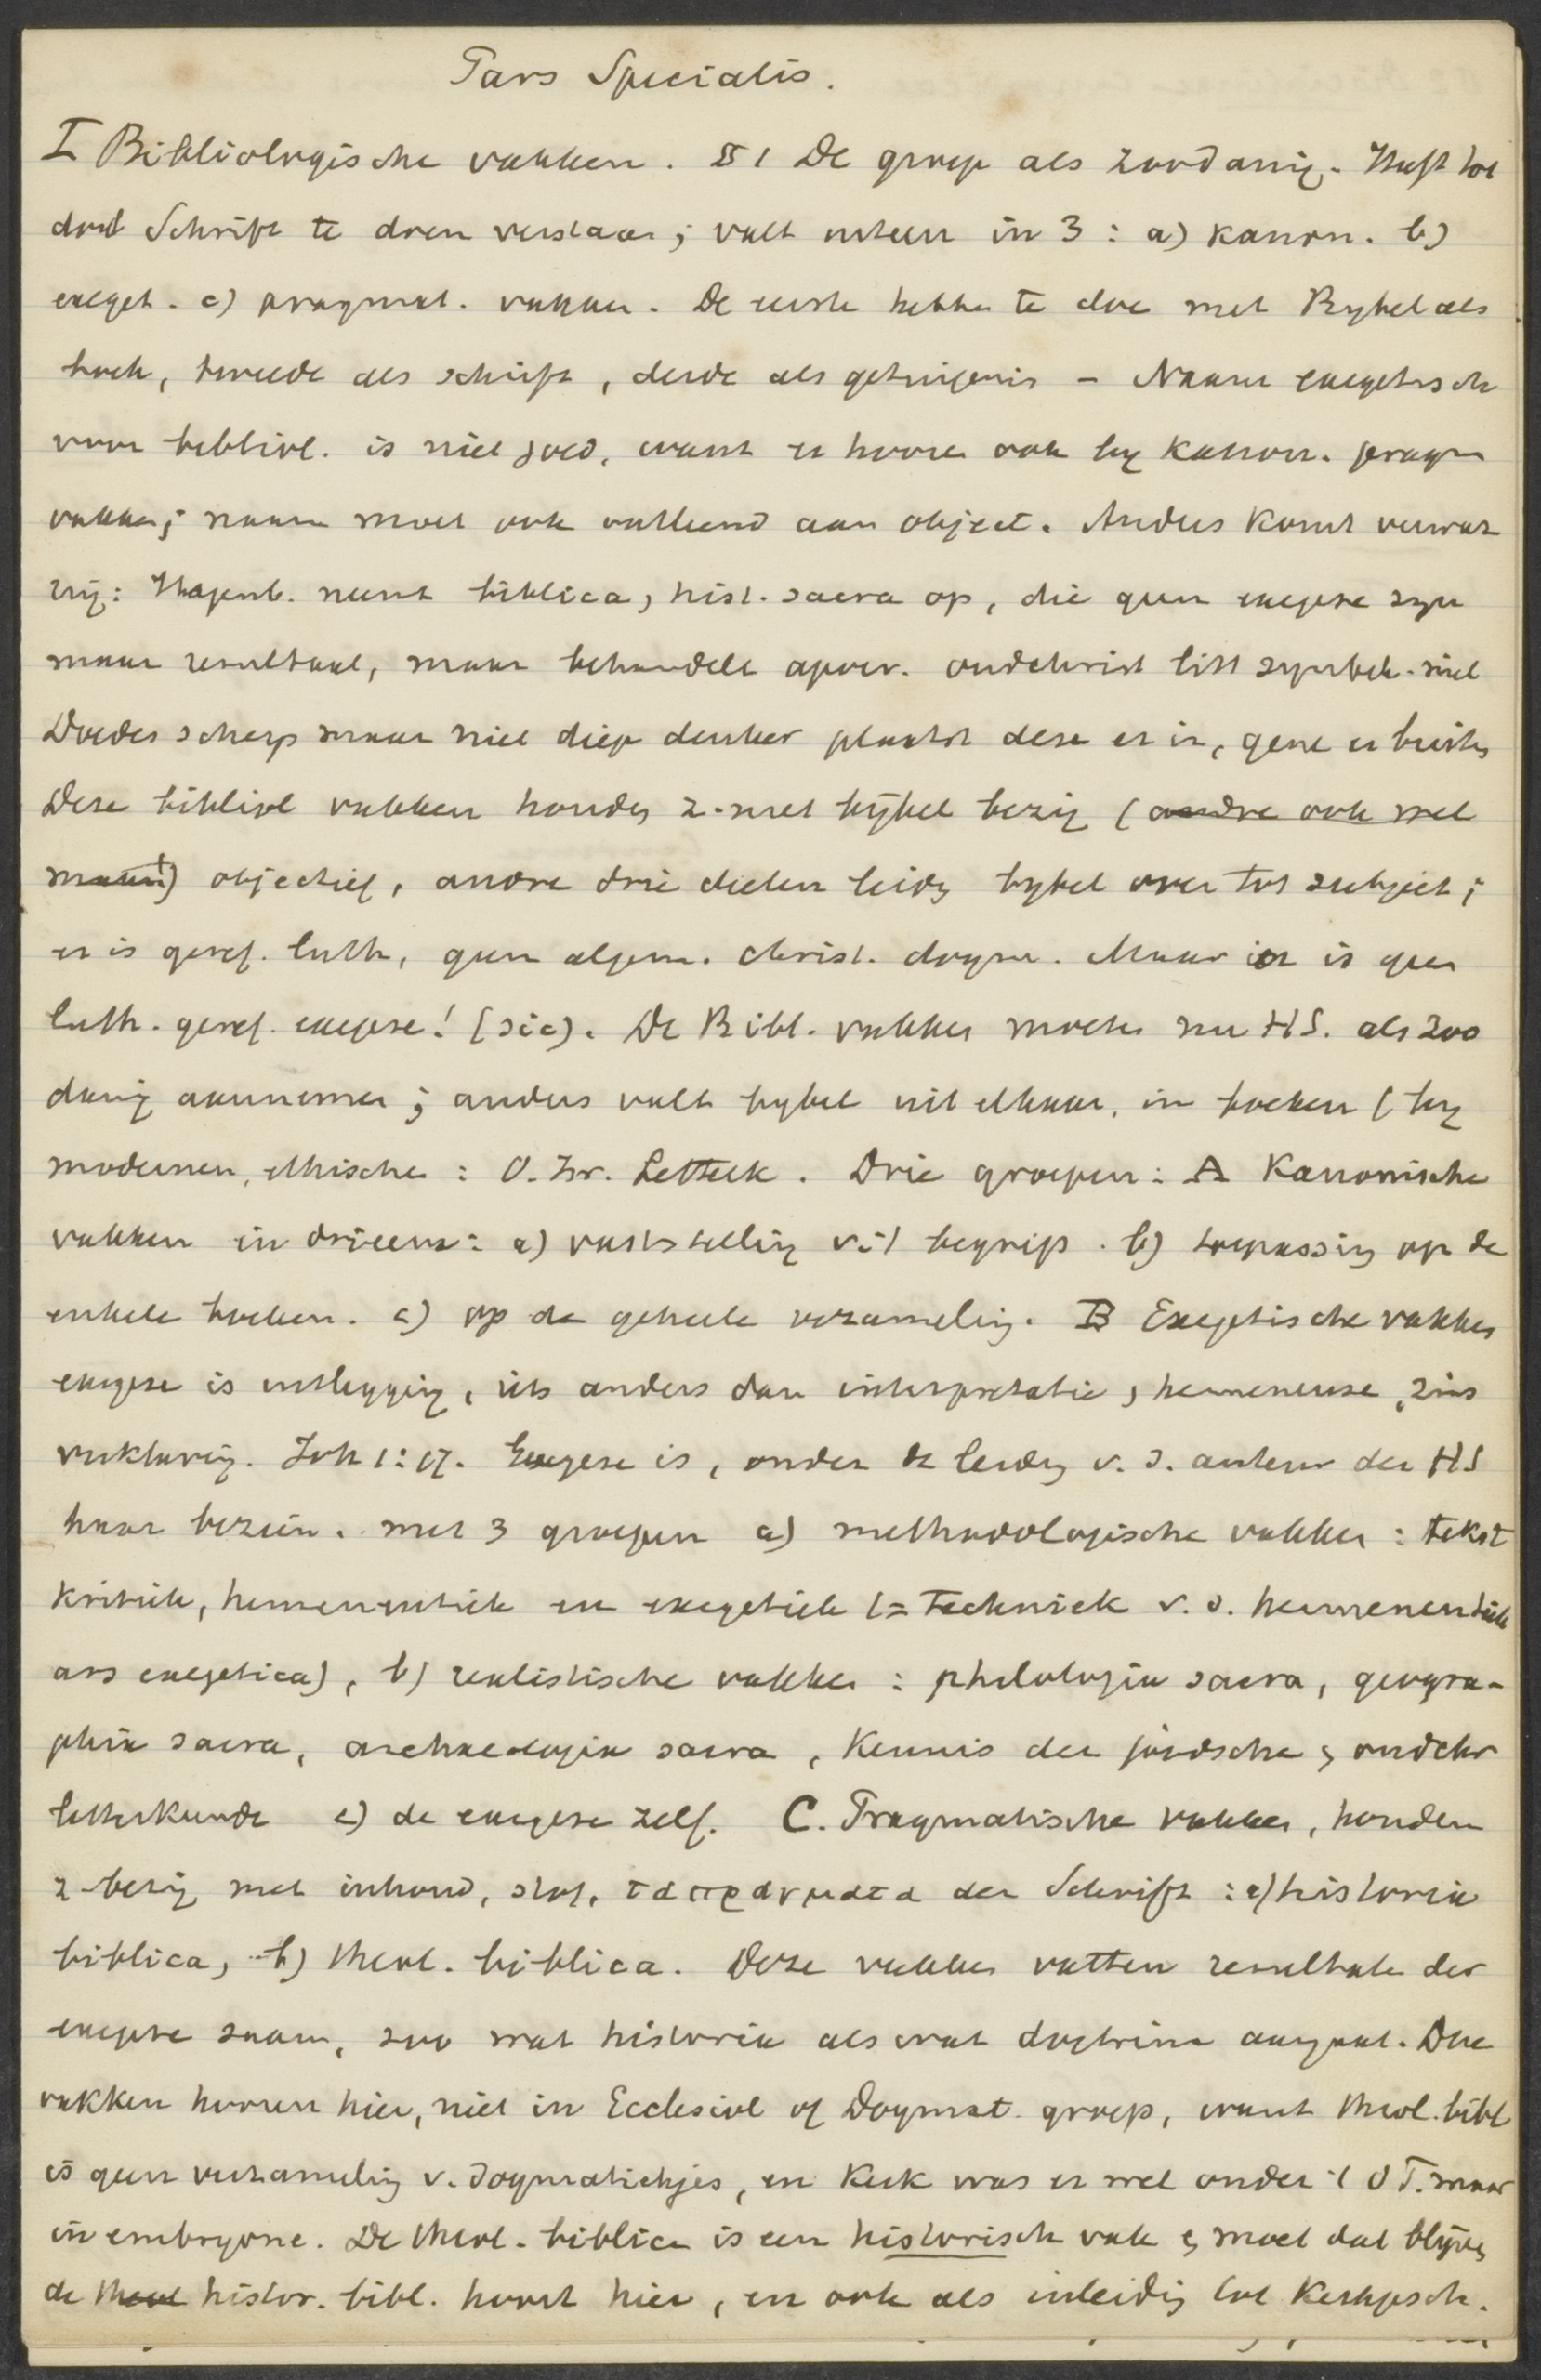 Pars Specialis.
I Bibliologische vakken. § 1 De groep als zoodanig. Heeft tot
doel Schrift te doen verstaan; valt uiteen in 3: a) kanon. b)
exeget. c) pragmat. vakken. De eerste hebben te doe met Bybel als
boek, tweede als schrift, derde als getuigenis - Naam exegetisch
voor bibliol. is niet goed, want er hooren ook by kanon. pragm
vakken; naam moet ook ontleend aan object. Anders komt verwar
ring: Hagenb. neemt biblica, hist. sacra op, die geen exegese zyn
maar resultaat, maar behandelt apocr. oudchrist litt symbol. niet
Doedes scherp maar niet diep denker plaatst deze er in, gene er buiten
Deze bibliol vakken houden z. met bijbel bezig (andre ook wel
maar) objectief, andre drie deelen leiden bybel over tot subject;
er is geref. luth, geen algem. christ. dogm. Maar er is geen
luth. geref. exegese! (sic). De Bibl. vakken moeten nu HS. als zoo
danig aannemen; anders valt bybel uit elkaar, in boeken (by
modernen, ethische: O. Isr. Letterk. Drie groepen: A Kanonische
vakken in drieen: a) vaststelling v. 't begrip. b) toepassing op de
enkele boeken. c) op de geheele verzameling. B Exegetische vakken
exegese is uitlegging, iets anders dan interpretatie, hermeneuse, zins
verklaring. Joh 1:17. Exegese is, onder de leiding v. d. auteur der HS
haar bezien. met 3 groepen a) methodologische vakken: tekst
kritiek, hermeneutiek en exegetiek (= techniek v. d. hermeneutiek
ars exegetica), b) realistische vakken: philologia sacra, geogra-
phia sacra, archaeologia sacra, kennis der joodsche en oudchr
letterkunde c) de exegese zelf. C. Pragmatische vakken, houden
z bezig met inhoud, stof, τα πραγματα der Schrift: a) historia
biblica, b) theol. biblica. Deze vakken vatten resultate der
exegese saam, zoo wat historia als wat doctrina aangaat. Deze
vakken hooren hier, niet in Ecclesiol of Dogmat. groep, want theol. bibl
is geen verzameling v. dogmatiekjes, en Kerk was er wel onder 't O T. maar
in embryone. De theol. biblica is een historisch vak en moet dat blijven
de theol histor. bibl. hoort hier, en ook als inleiding tot Kerkgesch.